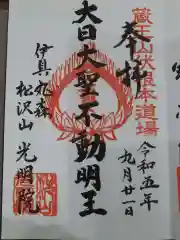 蔵王山伏根本道場
奉拝
令和五年
九月廿一日
大日大聖不動明王
伊具丸森
松沢山 光明院